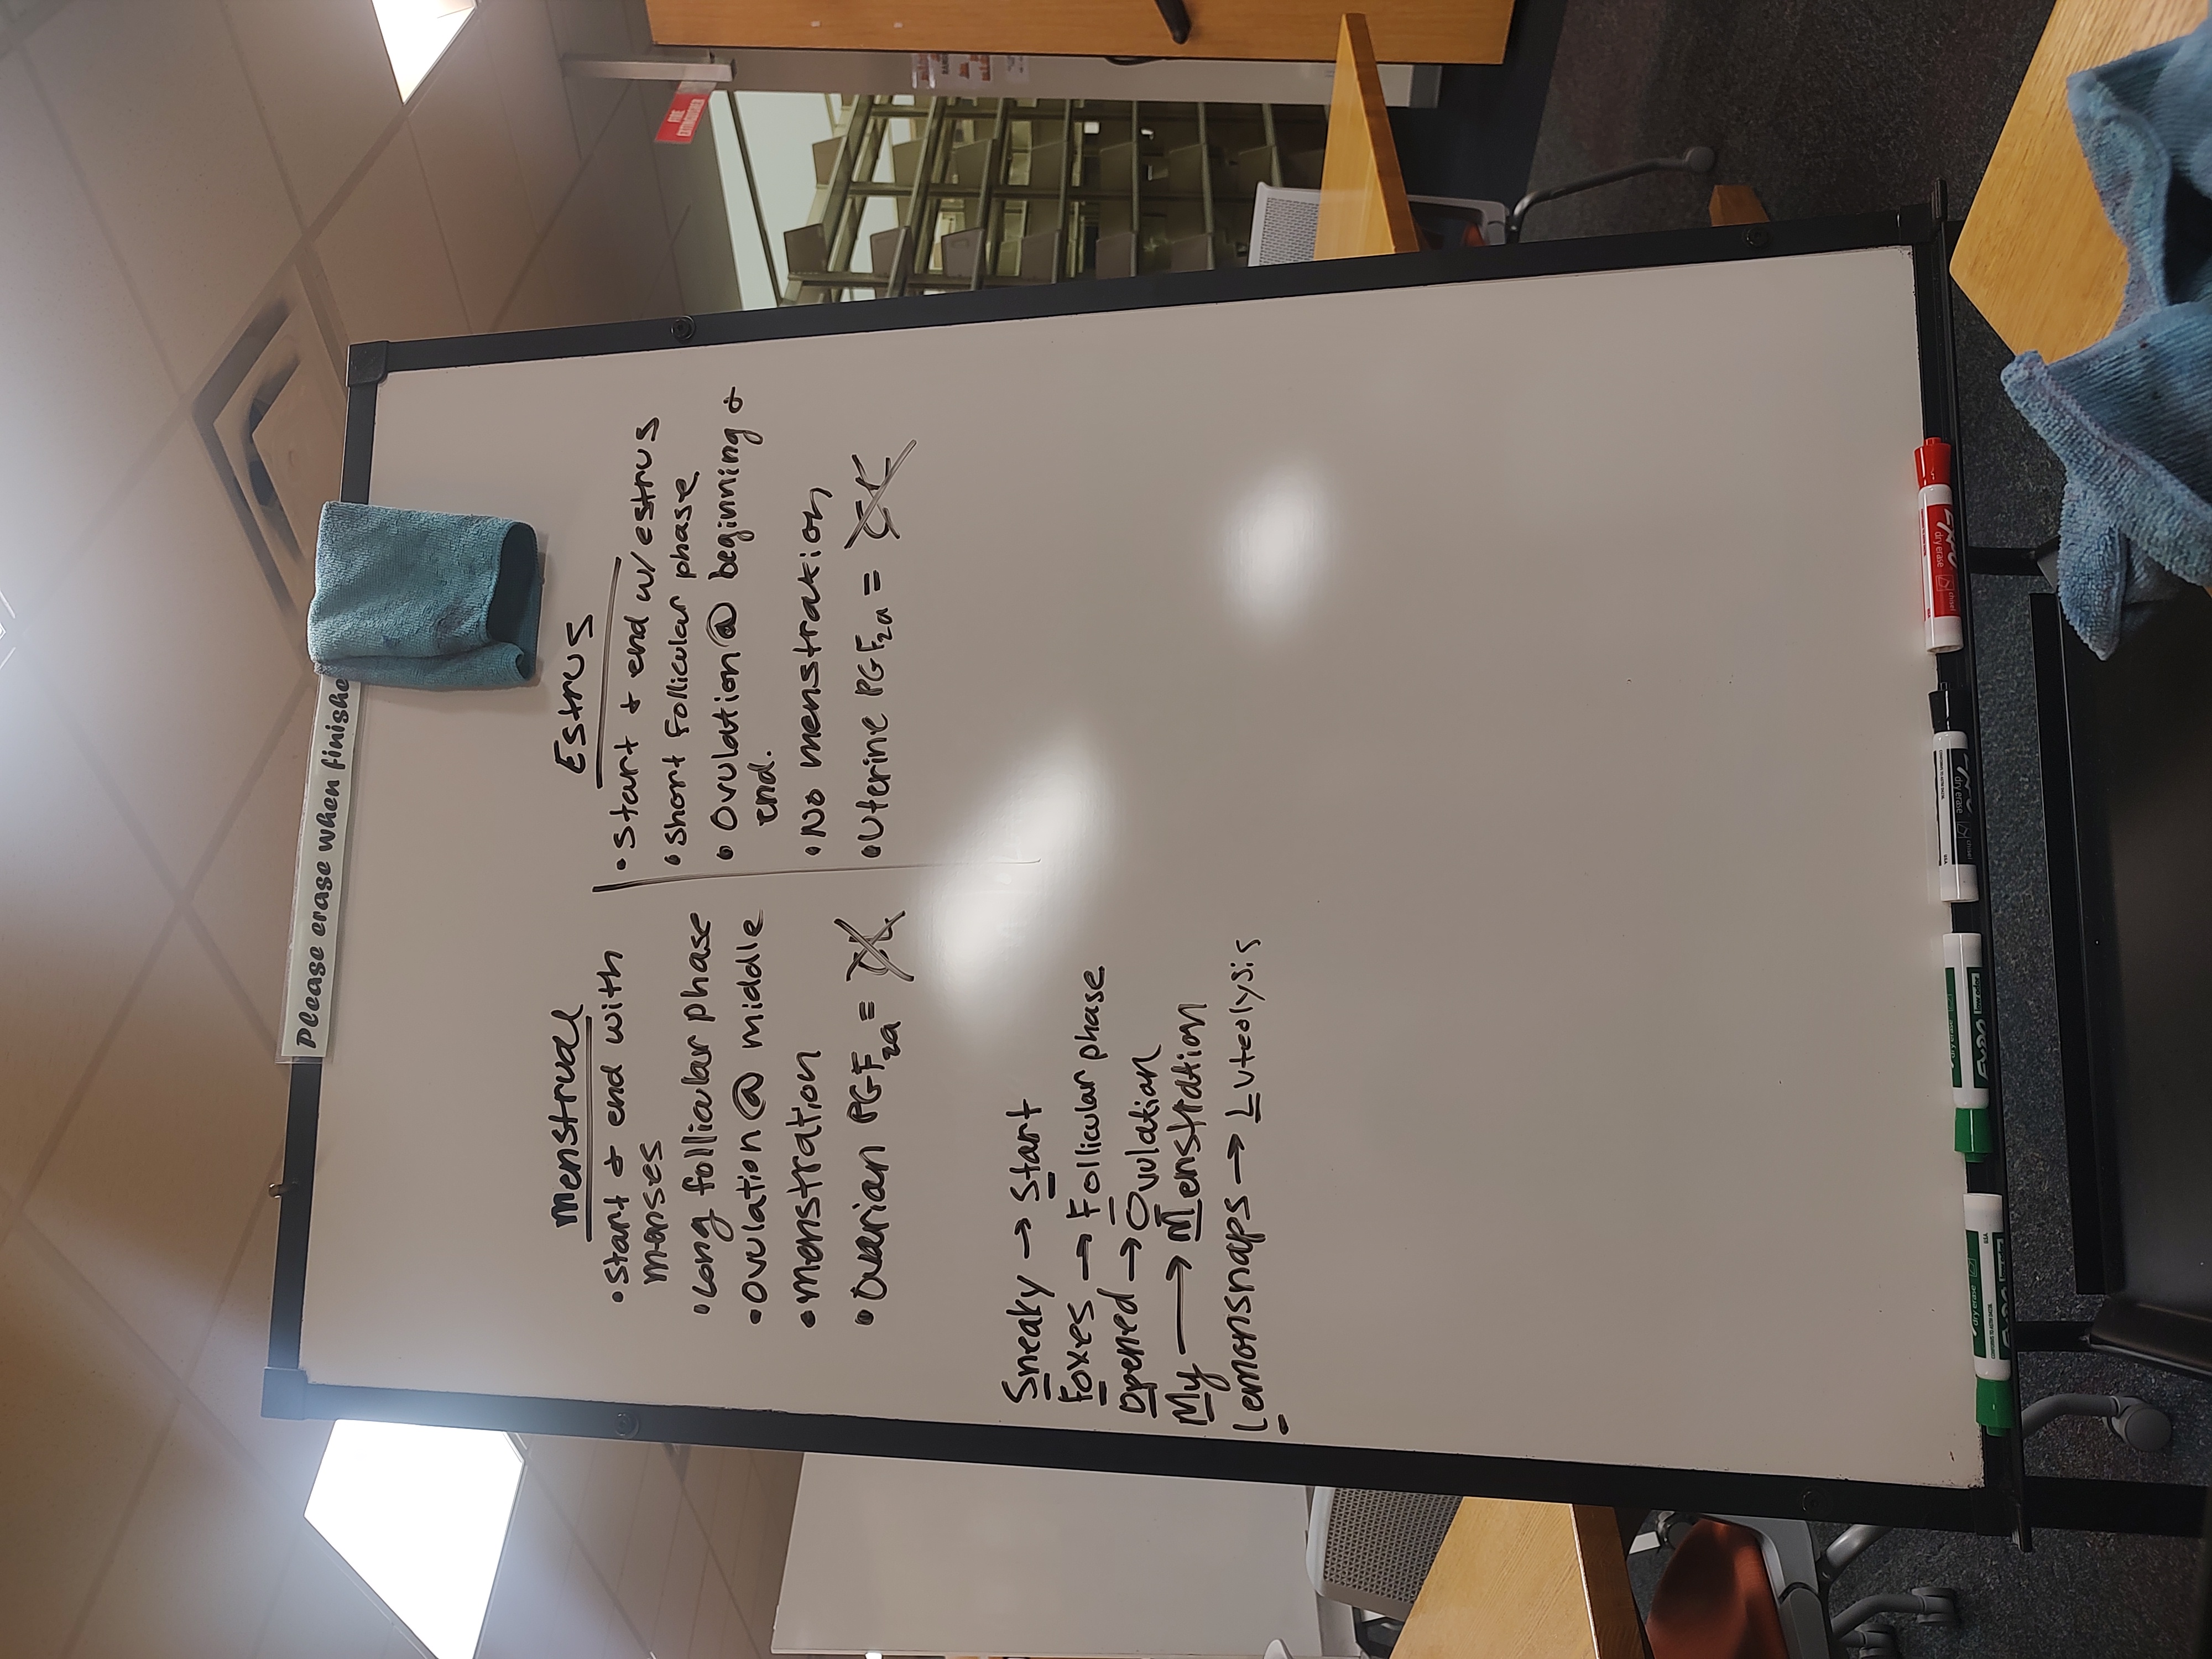 Please erase when finishe
FIRE
EXTINGUISHER
Menstrual
• start & end with
menses
• Long follicular phase
• Ovulation @ middle
• menstration
• Ovarian PGF2a =
Estrus
• Start & end w/estrus
• Short Follicular phase
• Ovulation @ beginning &
end.
• No menstration
• Uterine PGF2a =
Sneaky → Start
Foxes → Follicular phase
Opened → Ovulation
My → Menstration
Lemonsnaps → Luteolysis
EXPO
dry erase
chisel
dry erase
chisel
EXPO
dry erase